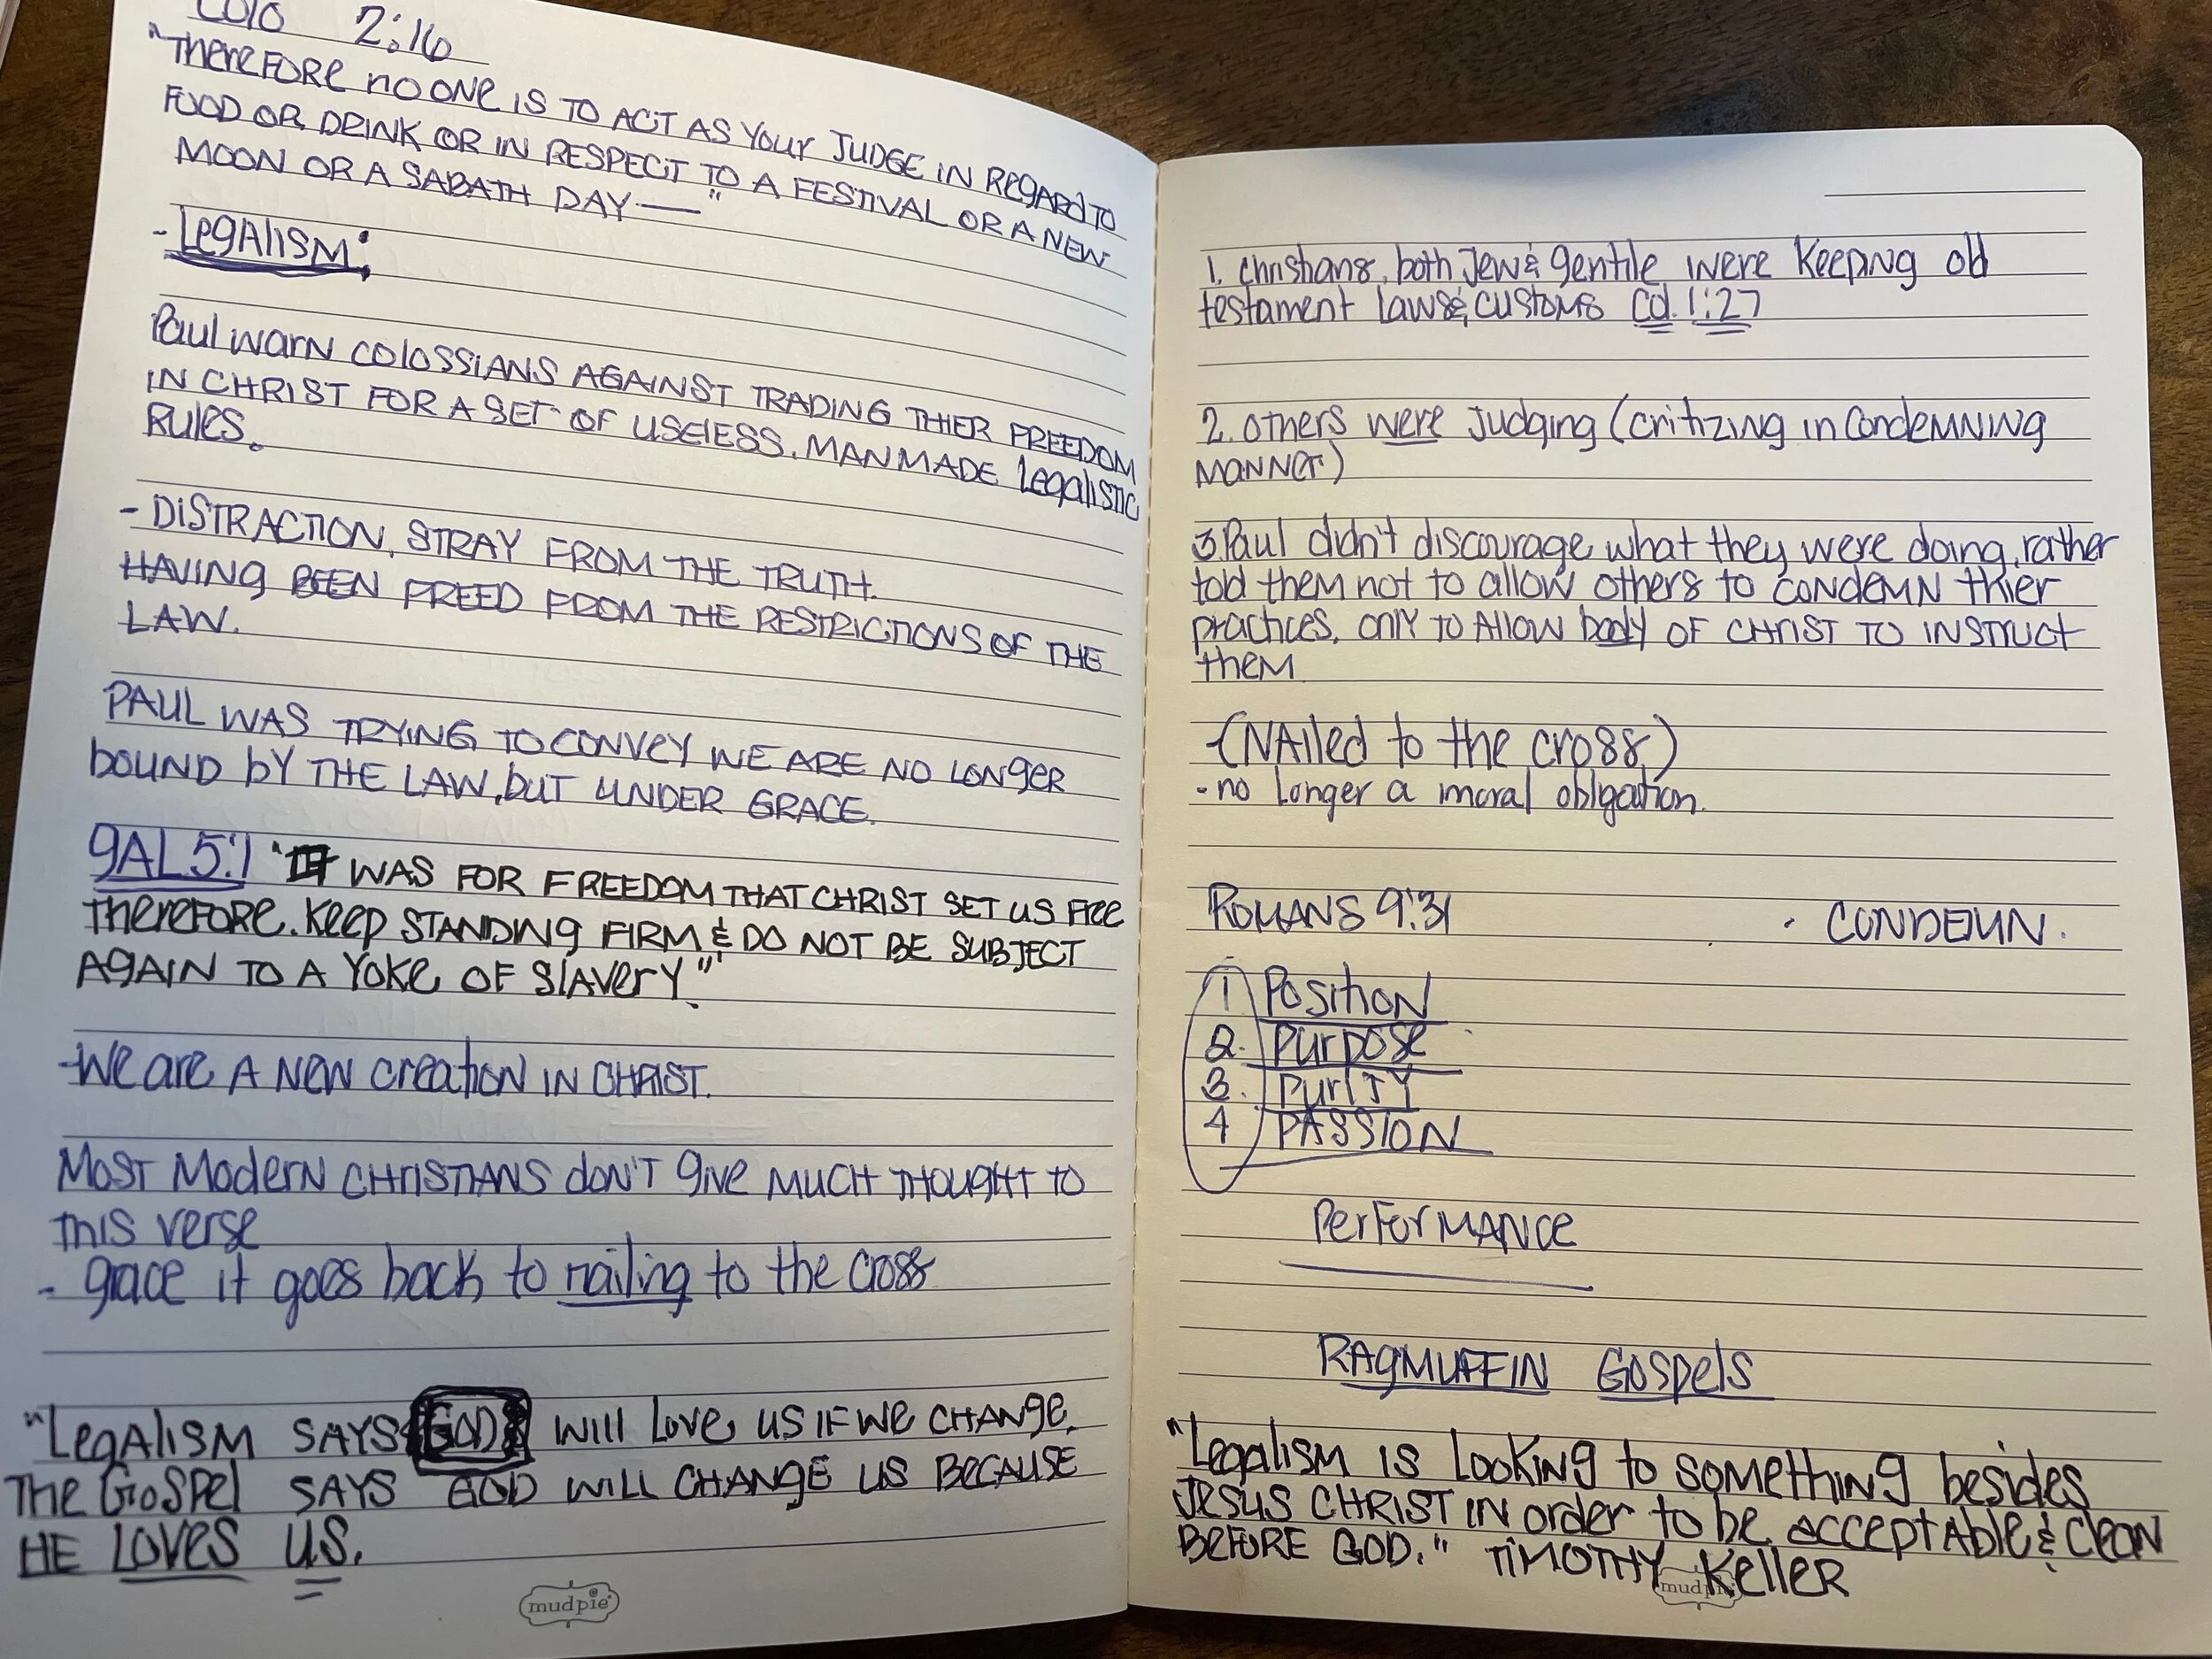 Colo 2:16
"Therefore no one is to act as your judge in regard to
food or drink or in respect to a festival or a new
moon or a Sabath day — "
- Legalism:
Paul warn Colossians against trading thier freedom
in Christ for a set of useless, manmade legalistic
rules.
- Distraction, stray from the truth.
Having been freed from the restrictions of the
law.
Paul was trying to convey we are no longer
bound by the law, but under grace.
Gal 5:1 "It was for freedom that Christ set us free
therefore, keep standing firm & do not be subject
again to a yoke of slavery."
- We are a new creation in Christ.
Most modern Christians don't give much thought to
this verse
- grace it goes back to nailing to the cross
"Legalism says God will love us if we change.
The Gospel says God will change us because
He loves us.
mudpie
1. Christians, both Jew & gentile were keeping old
testament laws & customs Col. 1:27
2. others were judging (critizing in condemning
manner)
3. Paul didn't discourage what they were doing, rather
told them not to allow others to condemn thier
practices, only to allow body of Christ to instruct
them
- (Nailed to the cross)
- no longer a moral obligation.
Romans 9:31 · Condemn.
1 Position
2. Purpose
3. Purity
4 Passion
Performance
Ragmuffin Gospels
"Legalism is looking to something besides
Jesus Christ in order to be acceptable & clean
before God." Timothy Keller
mudpie